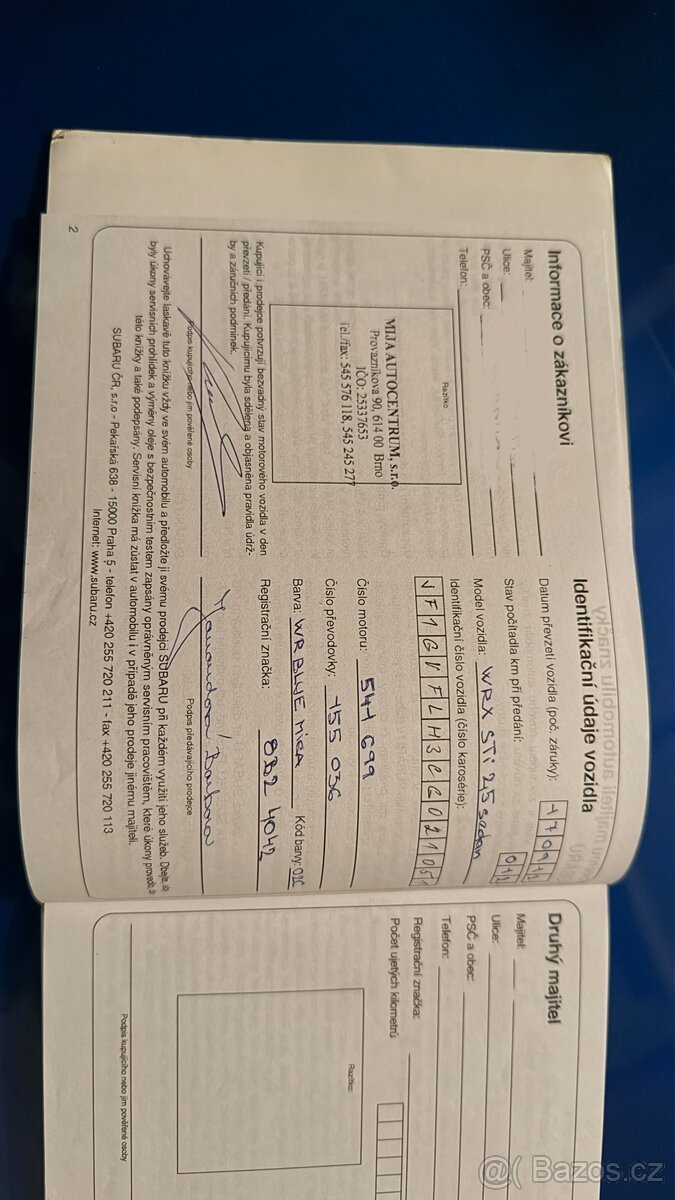 Informace o zákazníkovi
Majitel:
Ulice:
PSČ a obec:
Telefon:
Razítko
MIJA AUTOCENTRUM, s.r.o.
Provazníkova 90, 614 00 Brno
IČO: 25337653
Tel./fax: 545 576 118, 545 245 277
Kupující i prodejce potvrzují bezvadný stav motorového vozidla v den
převzetí / předání. Kupujícímu byla sdělena a objasněna pravidla údrž-
by a záručních podmínek.
Podpis kupujícího nebo jím pověřené osoby
Identifikační údaje vozidla
Datum převzetí vozidla (poč. záruky): 170912
Stav počítadla km při předání:
Model vozidla: WRX STi 2,5 sedan
Identifikační číslo vozidla (číslo karosérie):
JF1GVFLH3CG021051
Číslo motoru: 541 699
Číslo převodovky: 155 036
Barva: WR BLUE MICA Kód barvy: 02C
Registrační značka: 8B2 4042
Podpis předávajícího prodejce
Uchovávejte laskavě tuto knížku vždy ve svém automobilu a předložte ji svému prodejci SUBARU při každém využití jeho služeb. Dbejte, aby
byly úkony servisních prohlídek a výměny oleje s bezpečnostním testem zapsány oprávněným servisním pracovištěm, které úkony provedlo, do
této knížky a také podepsány. Servisní knížka má zůstat v automobilu i v případě jeho prodeje jinému majiteli.
SUBARU ČR, s.r.o - Pekařská 638 - 15000 Praha 5 - telefon +420 255 720 211 - fax +420 255 720 113
Internet: www.subaru.cz
2
Druhý majitel
Majitel:
Ulice:
PSČ a obec:
Telefon:
Registrační značka:
Počet ujetých kilometrů
Razítko:
Podpis kupujícího nebo jím pověřené osoby
@( Bazos.cz